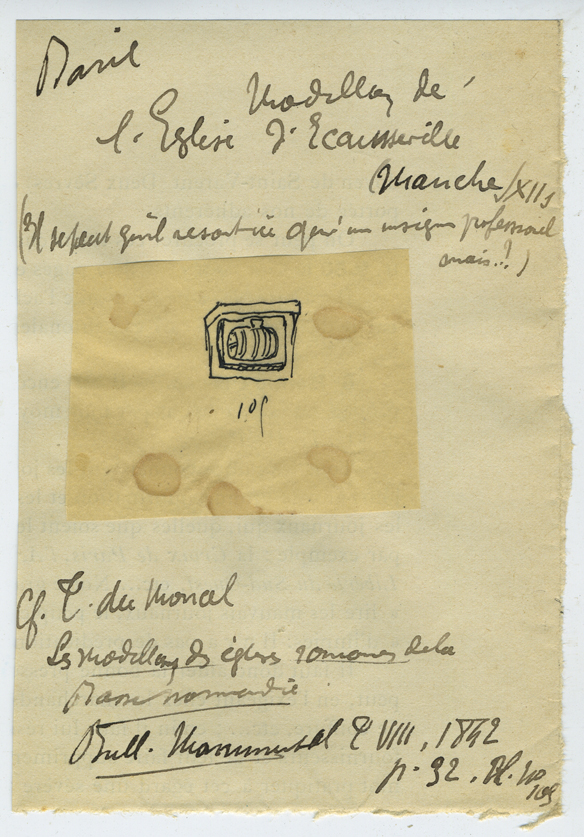 Baril
Modillon de
l'Eglise d'Ecausseville
(Manche) XIIs
(Il se peut qu'il ne soit ici que un insigne professionnel
mais..?)
105
Cf. T. du Moncel
Les modillons des églises romanes de la
Basse normandie
Bull. Monumental T VIII, 1842
p. 92. Pl. no
105